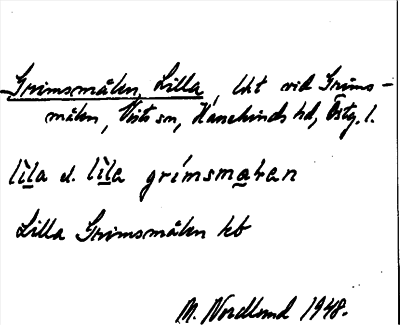 Grimsmålen, Lilla, lht vid Grims-
målen, Visti sn, Hanekinds hd, Östg. l.
lìla el. lìla grímsmaҍan
Lilla Grimsmålen kb
M. Nordlund 1948.